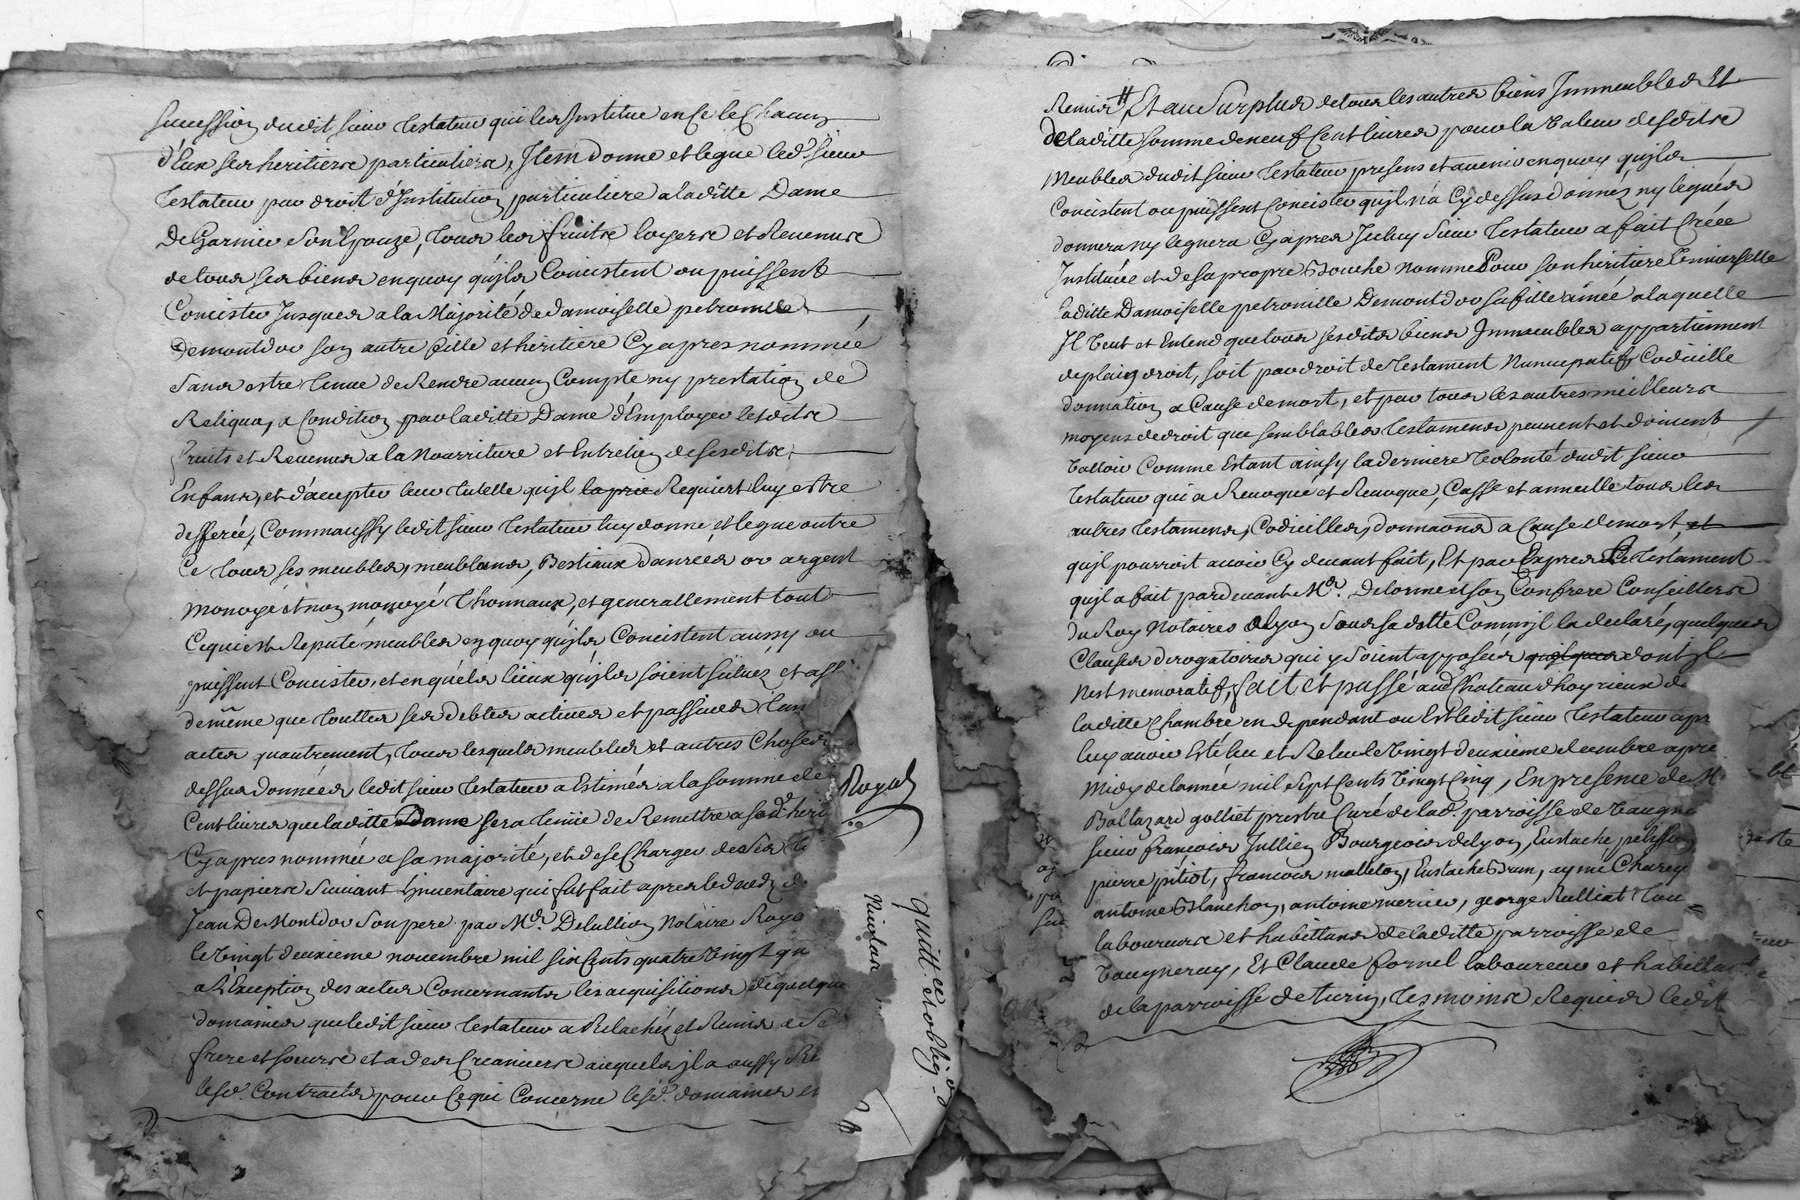 succession dudit sieur testateur qui les Institue en ce le Chacun
d'Eux ses heritiers particuliers, Item donne et legue led. sieur
testateur par droit d'Institution particuliere a laditte Dame
De Garnier son Epouze, tous les fruits loyers et Revenus
de tous ses biens en quoy qu'jls Concistent ou puissent
Concister Jusques a la Majorité de damoiselle petronille
Demontdor son autre fille et heritiere Cy apres nommée
sans estre tenue de Rendre aucun Compte ny prestation de
Reliqua, a Condition par laditte Dame d'Employer lesdits
fruits et Revenus a la Nourriture et Entretien de sesdits
Enfans, et d'accepter leur tutelle qu'jl la prie Requiert luy estre
defferée, Comm'aussy ledit sieur testateur luy donne et legue outre
Ce tous ses meubles, meublans, Bestiaux danrées or argent
monoyé et non monoyé Thonnaux, et generallement tout
Ce qui est Reputé meubles en quoy qu'jls Concistent aussy ou
puissent Concister, et en quels lieux qu'jls soient situez et ass
de même que touttes ses debtes actives et passives tan
actes quautrement, tous lesquels meubles et autres Choses
dessus données ledit sieur testateur a Estimés a la somme de
Cent livres que laditte Dame sera tenüe de Remettre a sond. herit
Cy apres nommée a sa majorité, et de se Charger de ses ti
et papiers suivant L'jnventaire qui fut fait apres le deceds de
Jean De Montdor son pere par Mr. Delullion Notaire Roya
le Vingt deuxieme novembre mil six Cents quatre Vingt qu
a L'Exception des actes Concernants les acquisitions de quelque
domaines que ledit sieur testateur a Relachés et Remis a se
frere et soeurs et a des Creanciers auquels jl a aussy Re
lesd. Contracts pour Ce qui Concerne lesd. domaines et
Royal
Nicolas
quitt.ce et obbig.
Remis # Et au Surplus de tous les autres biens Immeubles Et
de laditte somme de neuf Cent livres pour la Valeur desdits
Meubles dudit sieur testateur presens et avenir en quoy qu'jls
Concistent ou puissent Concister qu'jl n'a Cy dessus donnéz ny legués
donnera ny leguera Cy apres Iceluy sieur testateur a fait Créée
Instituée et de sa propre Bouche nommé Pour son heritiere Universelle
laditte Damoiselle petronille Demontdor sa fille ainée a laquelle
Il Veut et Entend que tous sesdits biens Immeubles appartiennent
de plain droit, soit par droit de testament Nuncupatif Codicille
donnation a Cause de mort, et par tous les autres meilleurs
moyens de droit que semblables testamens peuvent et doivent
Valloir Comme Estant ainsy la derniere Volonté dudit sieur
testateur qui a Revoqué et Revoque, Casse et annulle tous les
autres testamens, Codicilles, donnaons a Cause de mort et
qu'jl pourroit avoir Cy devant fait, Et par Expres Le testament
qu'jl a fait pardevant Mr. Delorme et son Confrere Conseillers
du Roy Notaires a Lyon sous sa datte Comm'jl la declaré, quelques
Clauses derogatoires qui y soient apposées quelques dont jl
n'est memoratif, fait et passé aud. Chateau d'hoyrieux de
laditte Chambre en dependant ou Est ledit sieur testateur apr
luy avoir Esté leu et Releu le Vingt deuxieme decembre apre
midy de lannée mil sept Cents Vingt Cinq, En presence de M
Baltazard golliet prestre Curé de lad. parroisse de Vaugne
sieur françois Jullien Bourgeois de Lyon, Eustache pelisson
pierre pitiot, françois malleton, Eustache Brun, aymé Charey
antoine Blanchon, antoine mercier, george Rulliat Tou=
laboureurs et habittans de laditte parroisse de
Vaugneray, Et Claude fornel laboureur et habittant
de la parroisse de turin, tesmoins Requis ledit